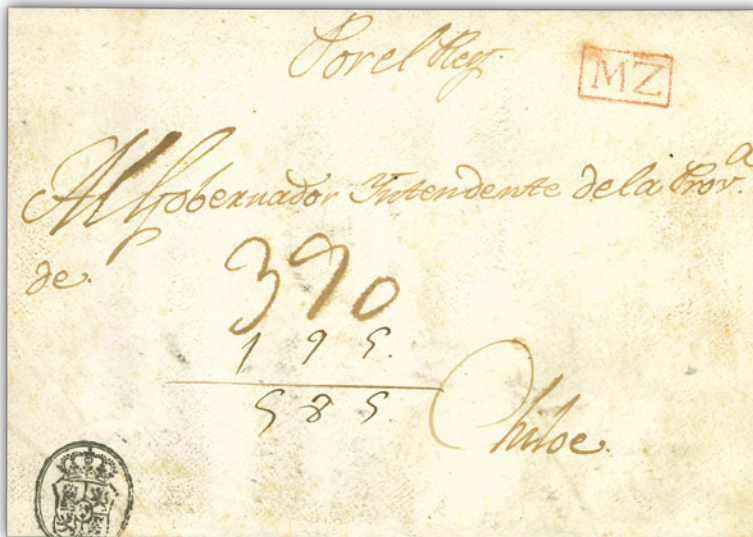 Por el Rey.
MZ
Al Gobernador Intendente de la Prov.a
de.
390
195.
585.
Chiloe.